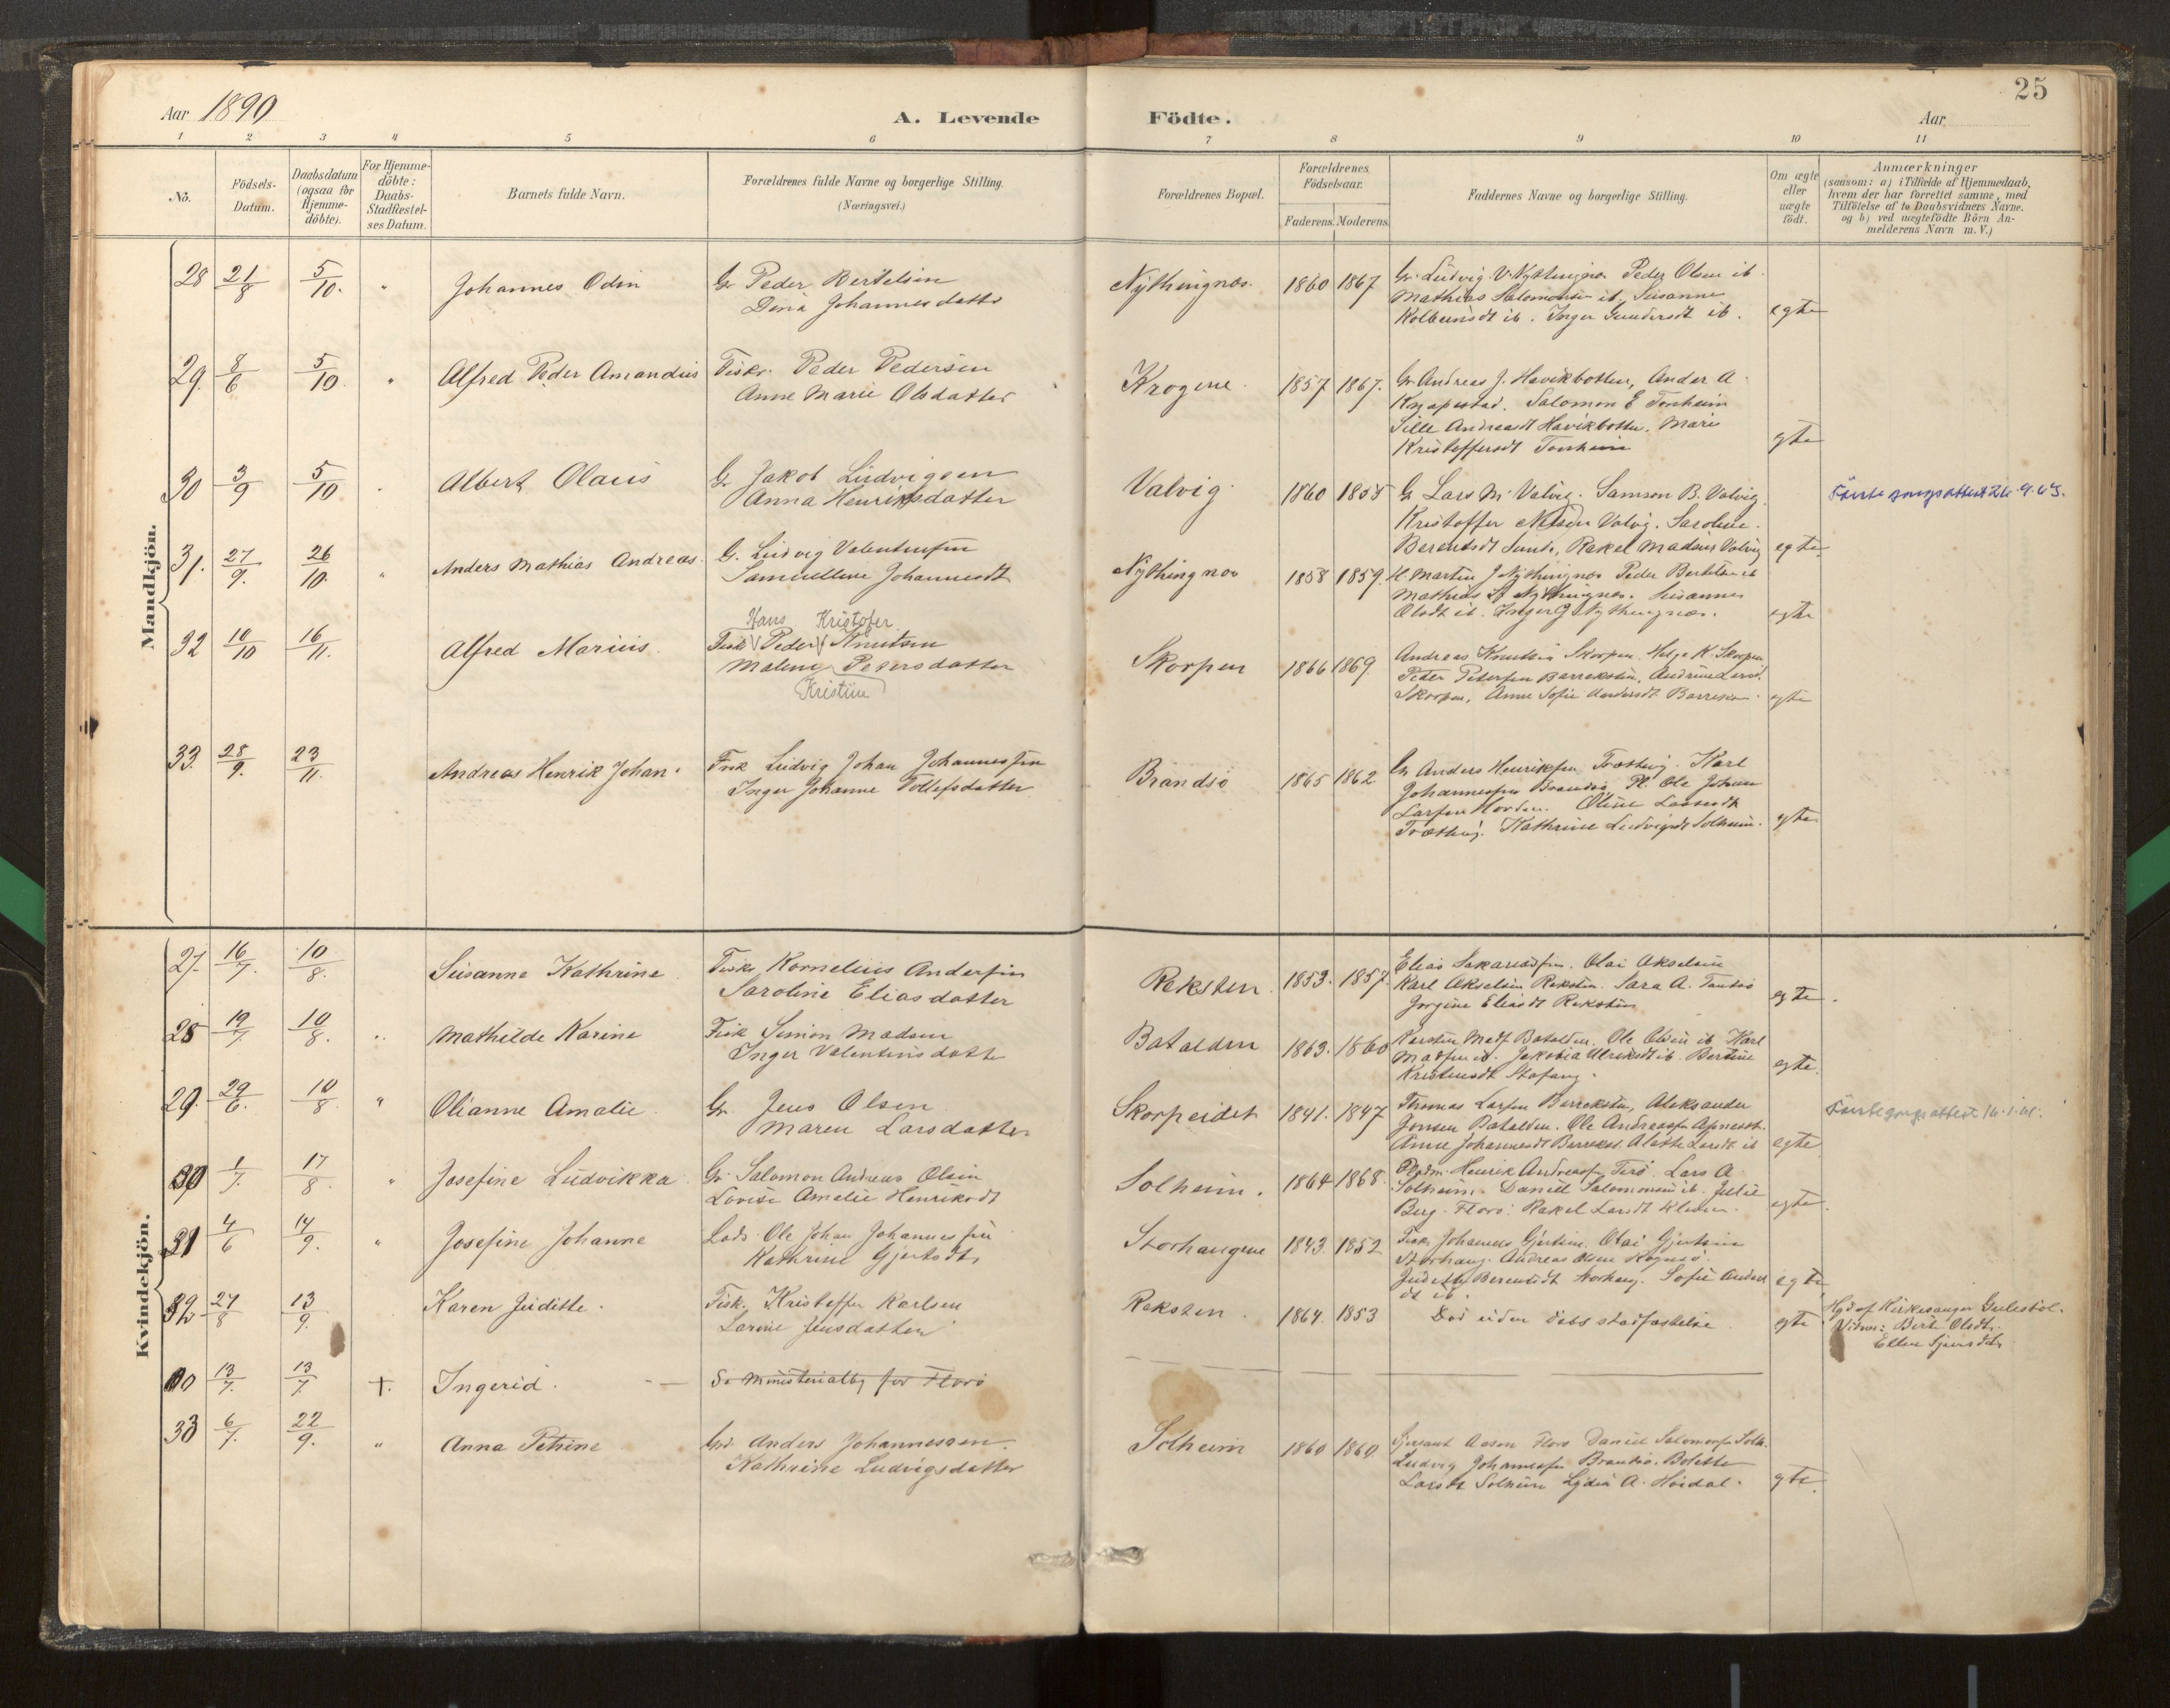 25
Aar 1890
A. Levende Födte.
Aar
1 2 3 4 5 6 7 8 9 10 11
No.
Födsels-
Datum.
Daabsdatum
(ogsaa for
Hjemme-
döbte).
For Hjemme-
döbte:
Daabs-
Stadfæstel-
ses Datum.
Barnets fulde Navn.
Forældrenes fulde Navne og borgerlige Stilling.
(Næringsvei.)
Forældrenes Bopæl.
Forældrenes
Födselsaar.
Faderens. Moderens.
Faddernes Navne og borgerlige Stilling.
Om ægte
eller
uægte
födt.
Anmærkninger
(saasom: a) i Tilfælde af Hjemmedaab,
hvem der har forrettet samme, med
Tilföielse af to Daabsvidners Navne,
og b) ved uægtefödte Börn An-
melderens Navn m. V.)
Mandkjön.
28 21/8 5/10. " Johannes Odin
Gr Peder Bertelsen
Dina Johannesdatter
Nythingnæs. 1860 1867
Gr. Ludvig V. Nythingnæs Peder Olsen ib.
Mathias Salomonsen ib. Susanne
Kolbeinsdt ib. Inger Gundersdt ib.
egte
29. 8/6 5/10. " Alfred Peder Amandus
Fisker Peder Pedersen
Anne Marie Olsdatter
Krogene 1857 1867.
Gr Andreas J. Havikbotten, Ander A.
Knapstad. Salomon E Tonheim
Sille Andreasdt Havikbotten. Mari
Kristoffersdt Tonheim
egte
30 3/9 5/10 Albert Olaus
Gr Jakob Ludvigsen
Anna Henriksdatter
Valvig 1860 1855
G Lars M. Valvig. Samson B. Valvig
Kristoffer Nilsen Valvig. Saroline
Berentsdt Sunde, Rakel Madsdt Valvig
egte.
31. 27/9. 26/10. " Anders Mathias Andreas.
G. Ludvig Valentinsen
Samueline Johannesdt
Nythingnæs 1858 1859.
H. Martin J Nythingnæs Peder Bertelsen ib
Mathias S Nythingnæs. Susanne
Olsdt ib. Inger G Nythingnæs.
egte
32 10/10 16/11. Alfred Marius.
Hans Kristofer
Fisk Peder Knutsen
Malene Pedersdatter
Kristine
Skorpen 1866 1869.
Andreas Knutsen Skorpen. Helge K. Skorpen
Peter Petersen Barreksten, Andrine Larsd.
Skorpen, Anne Sofie Andersdt Barreksten.
egte
33. 28/9. 23/11. Andreas Henrik Johan.
Fisk Ludvig Johan Johannessen
Inger Johanne Tollefsdatter
Brandsö 1865 1862
Gr Anders Henriksen Træthvig. Karl
Johannessen Brandsö, Pl. Ole Johan
Larsen Horden. Oline Larsesdt
Træthvig. Kathrine Ludvigsdt Solheim.
egte
Kvindekjön.
27. 16/7. 10/8. Susanne Kathrine
Fisker Kornelius Andersen
Saroline Eliasdatter
Reksten. 1853. 1857
Elias Sakariassen. Olai Akselsen
Karl Akselsen Reksten. Sara A. Tansö
Jorgine Eliasdt Reksten
egte.
28 19/7 10/8. " Mathilde Karine
Fisk Simon Madsen
Inger Valentinsdatter
Batalden 1863. 1860
Karsten Mads Batalden. Ole Olsen ib Karl
Madsen ib. Jakobia Ulriksdt ib. Bertine
Kristensdt Stafang.
egte.
29. 29/6. 10/8. " Olianne Amalie
Gr. Jens Olsen
Maren Larsdatter
Skorpeidet 1841. 1847
Thomas Larsen Barreksten, Aleksander
Jonsen Batalden. Ole Andreassen
Anne Johannesdt Barrekst. Larsdt ib
egte
30 1/7. 17/8. " Josefine Ludvikka
Gr Salomon Andreas Olsen
Lovise Amalie Henriksdt
Solheim. 1864 1868.
Henrik Andreassen Terö. Lars A.
Solheim. Daniel Salomonsen ib. Julie
Berg. Florö. Rakel Larsdt
egte.
31 4/6 14/9. " Josefine Johanne
Lods. Ole Johan Johannessen
Kathrine Gjertsdt.
Storhaugene 1843. 1852
Fisk. Johannes Gjertsen. Olai Gjertsen
Storhaug. Andreas Olsen
Judith Berentsdt Storhaug. Sofie Anders
dt ib.
egte
32 27/8 13/9. Karen Juditte.
Fisk. Kristoffer Karlsen
Larine Jensdatter
Reksten. 1864. 1853
Död uden daabs stadfæstelse
egte
Hjd af Kirkesanger Gulestöl.
Vidner: Berte Olsdt.
Ellen Sjursdt.
00 13/7. 13/7 +. Ingerid. — Se Ministerialbg for Florö
33 6/7. 22/9. " Anna Petrine
Grd Anders Johannessen.
Kathrine Ludvigsdatter
Solheim 1860 1860
Sjersant Aasen Florö Daniel Salomonsen Solh.
Ludvig Johannessen Brandsö. Bolette
Larsdt Solheim Lydia A. Höidal.
egte.